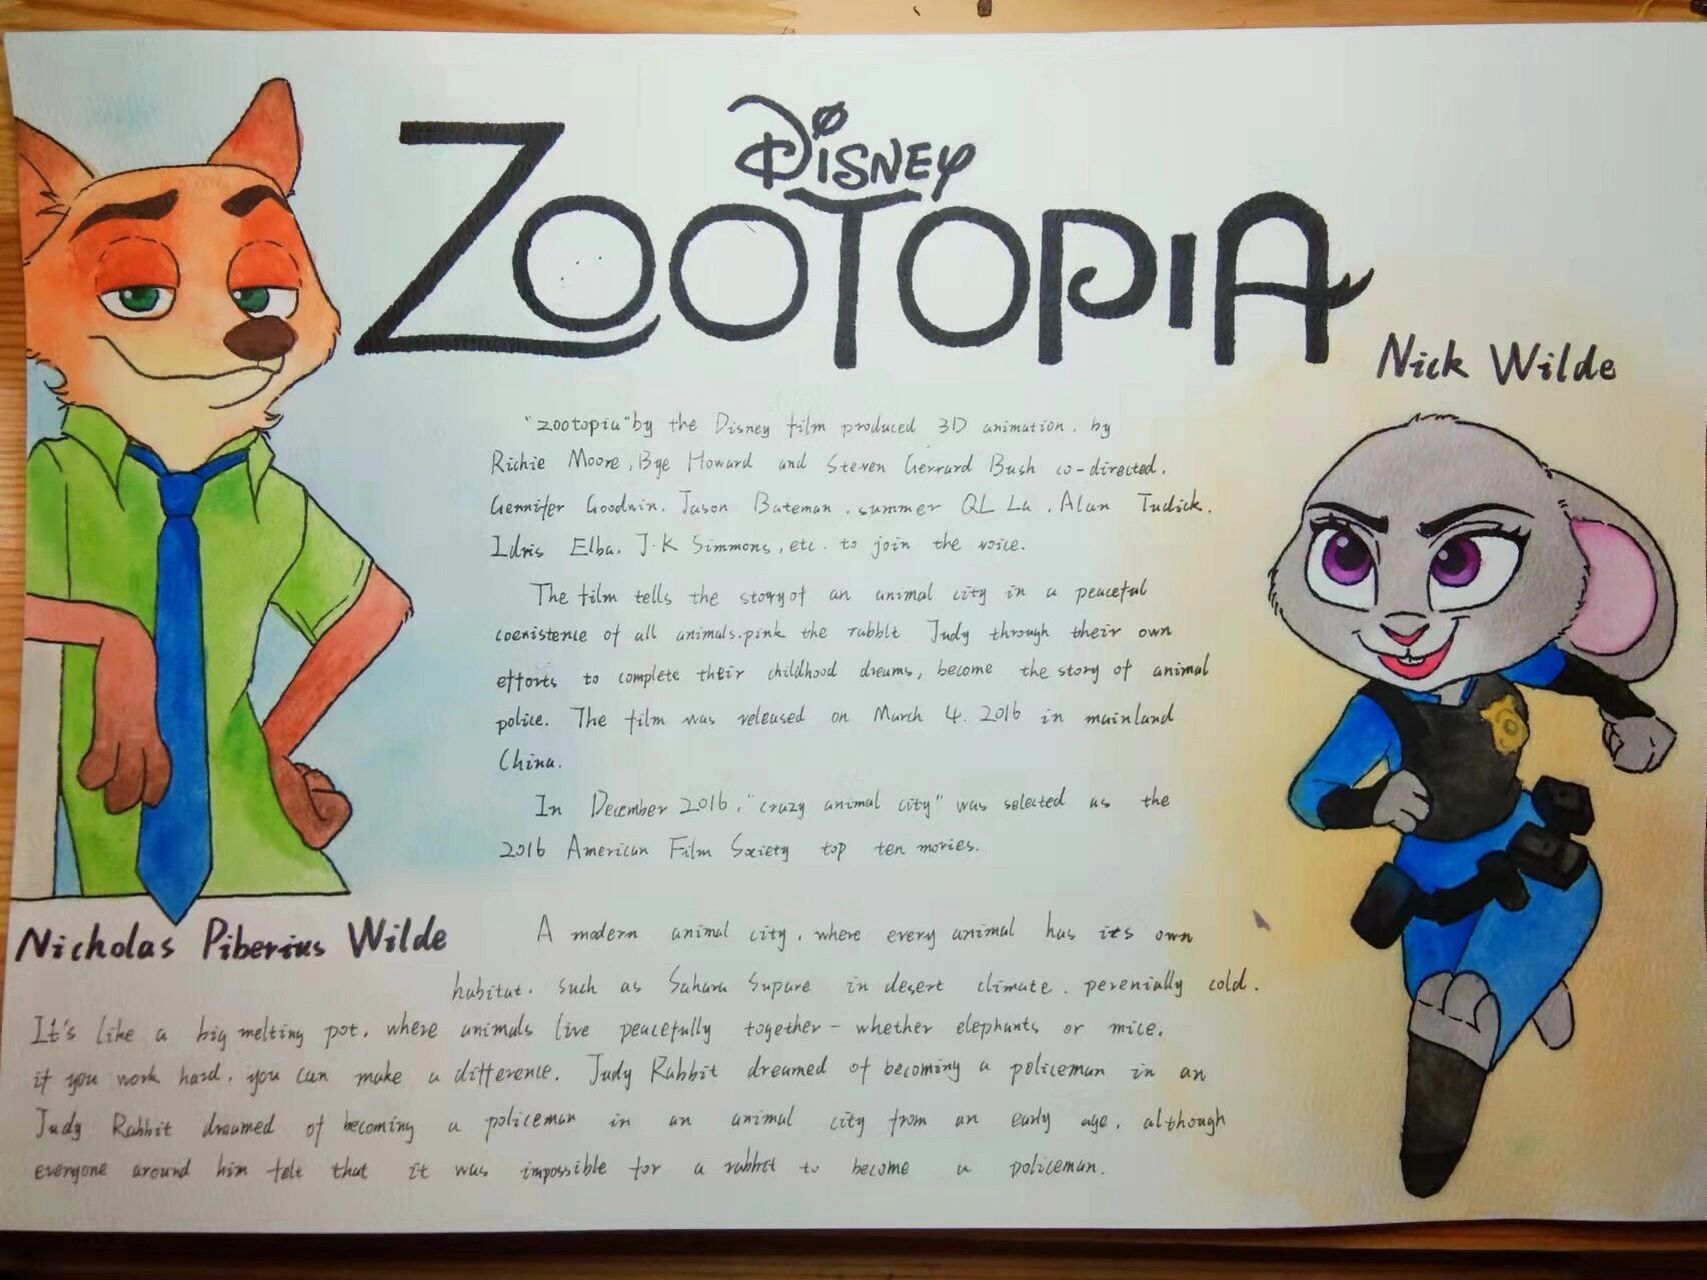 Disney
ZOOTOPIA
Nick Wilde
"zootopia" by the Disney film produced 3D animation. by
Richie Moore, Bye Howard and Steven Gerrard Bush co-directed.
Gennifer Goodwin. Jason Bateman. summer QL La. Alan Tudick.
Idris Elba. J.K Simmons, etc. to join the voice.
The film tells the story of an animal city in a peaceful
coexistence of all animals. pink the rabblt Judy through their own
efforts to complete their childhood dreams, become the story of animal
police. The film was released on March 4. 2016 in mainland
China.
In December 2016, "crazy animal city" was selected as the
2016 American Film Society top ten movies.
Nicholas Piberius Wilde
A modern animal city, where every animal has its own
habitat. such as Sahara Supare in desert climate. perenially cold.
It's like a big melting pot, where animals live peacefully together - whether elephants or mice.
if you work hard. you can make a difference. Judy Rabbit dreamed of becoming a policeman in an
Judy Rabbit dreamed of becoming a policeman in an animal city from an early age, although
everyone around him felt that it was impossible for a rabbit to become a policeman.